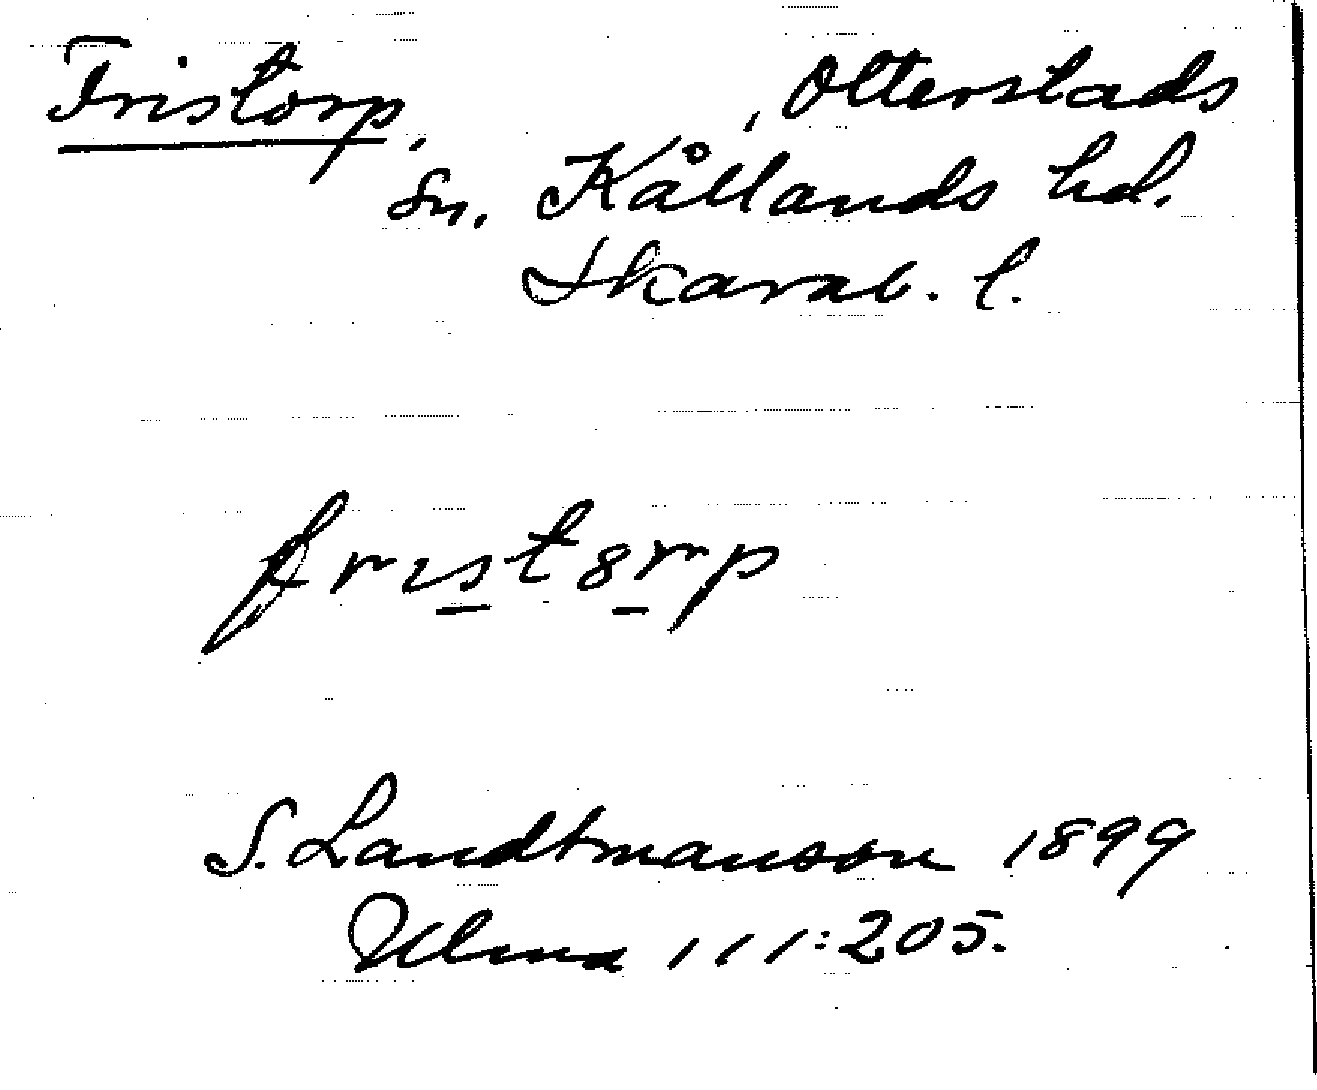 Fristorp, , Otterstads
sn. Kållands hd.
Skarab. l.
fristorp
S. Landtmanson 1899
Ulma 111:205.